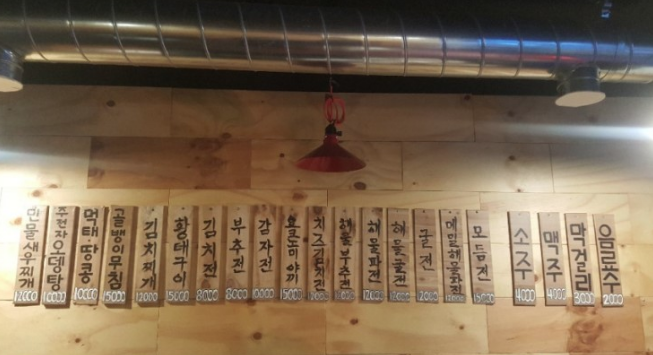 민물새우찌개 12000
주전자오뎅탕 10000
먹태땅콩 10000
골뱅이무침 15000
김치찌개 12000
황태구이 15000
김치전 8000
부추전 8000
감자전 10000
오꼬노미야끼 15000
치즈김치전
해물부추전
해물파전 12000
해물굴전 12000
굴전 12000
메밀해물파전
모듬전 15000
소주 4000
맥주 4000
막걸리 3000
음료수 2000